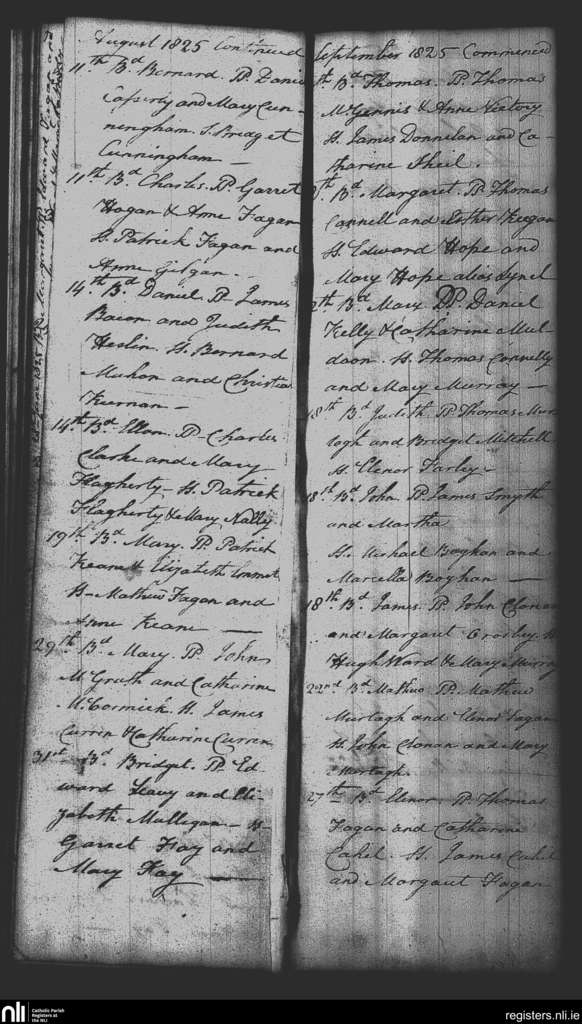 August 1825 Continued
11th Bd Bernard. PP Daniel
Caferty and Mary Cun-
ningham. S. Bridget
Cunningham —
11th Bd Charles. PP Garret
Hagan & Anne Fagan
S. Patrick Fagan and
Anne Gilgan.
14th Bd Daniel PP James
Bacon and Judith
Heslin. S. Bernard
Mahon and Christian
Kiernan —
14th Bd Ellen. PP Charles
Clarke and Mary
Flagherty. S. Patrick
Flagherty & Mary Nally
19th Bd Mary. PP Patrick
Keane & Elizabeth
S— Mathew Fagan and
Anne Keane —
29th Bd Mary. PP John
McGrath and Catharine
McCormick S. James
Curren & Catharine Curren
31st Bd Bridget. PP Ed-
ward Leavy and Eli-
zabeth Mulligan — S—
Garret Fay and
Mary Fay —
September 1825 Commenced
Bd Thomas. PP Thomas
McGennis & Anne
S. James Donnelan and Ca-
tharine Sheil.
Bd Margaret. PP Thomas
Connell and Esther Keegan
S. Edward Hope and
Mary Hope alias Lynch
Bd Mary PP Daniel
Kelly & Catharine Mul-
doon. S. Thomas Connelly
and Mary Murray —
18th Bd Judith PP Thomas Mur
togh and Bridget Mitchell
S. Elenor Farley —
18th Bd John PP James Smyth
and Martha
S. Michael Boyhan and
Marcella Boyhan —
18th Bd James. PP John Clonan
and Margaret Crosby. S
Hugh Ward & Mary Murray
22nd Bd Mathew PP. Mathew
Murtagh and Elenor Fagan
S. John Clonan and Mary
Murtagh.
27th Bd Elenor. PP Thomas
Fagan and Catharine
Cahel. S. James Cahel
and Margaret Fagan
nli Catholic Parish
Registers at
the NLI
registers.nli.ie